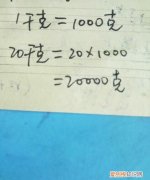 1千克=1000克
20千克=20×1000
=20000克